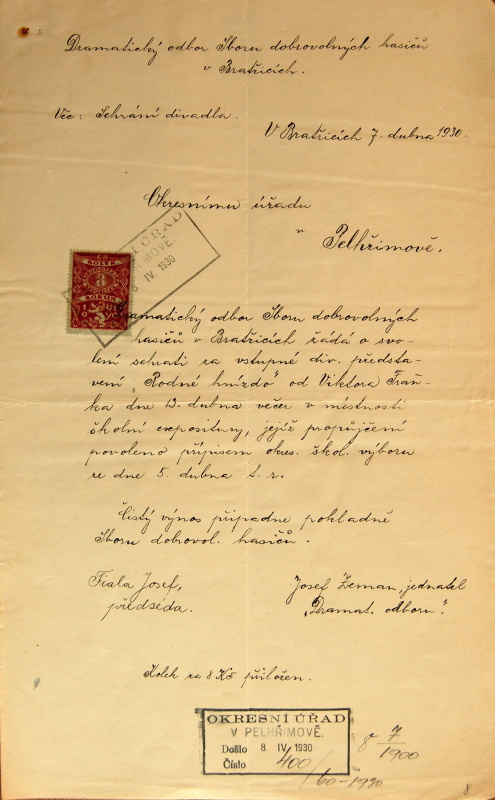 Dramatický odbor Sboru dobrovolných hasičů
v Bratřicích.
Věc: Sehrání divadla.
V Bratřicích 7. dubna 1930.
Okresnímu úřadu
v
Pelhřimově.
KOLEK
KORUN
ÚŘAD
8 IV. 1930
Dramatický odbor Sboru dobrovolných
hasičů v Bratřicích žádá o svo-
lení sehrati za vstupné div. předsta-
vení „Rodné hnízdo" od Viktora Fraň-
ka dne 13. dubna večer v místnosti
školní expositury, jejíž propůjčení
povoleno přípisem okres. škol. výboru
ze dne 5. dubna t. r.
Čistý výnos připadne pokladně
Sboru dobrovol. hasičů.
Fiala Josef,
předseda.
Josef Zeman, jednatel
„Dramat. odboru".
Kolek za 8 Kč přiložen.
OKRESNÍ ÚŘAD
V PELHŘIMOVĚ.
Došlo 8 IV. 1930
Číslo 400
60-1930
8 7/1900
8